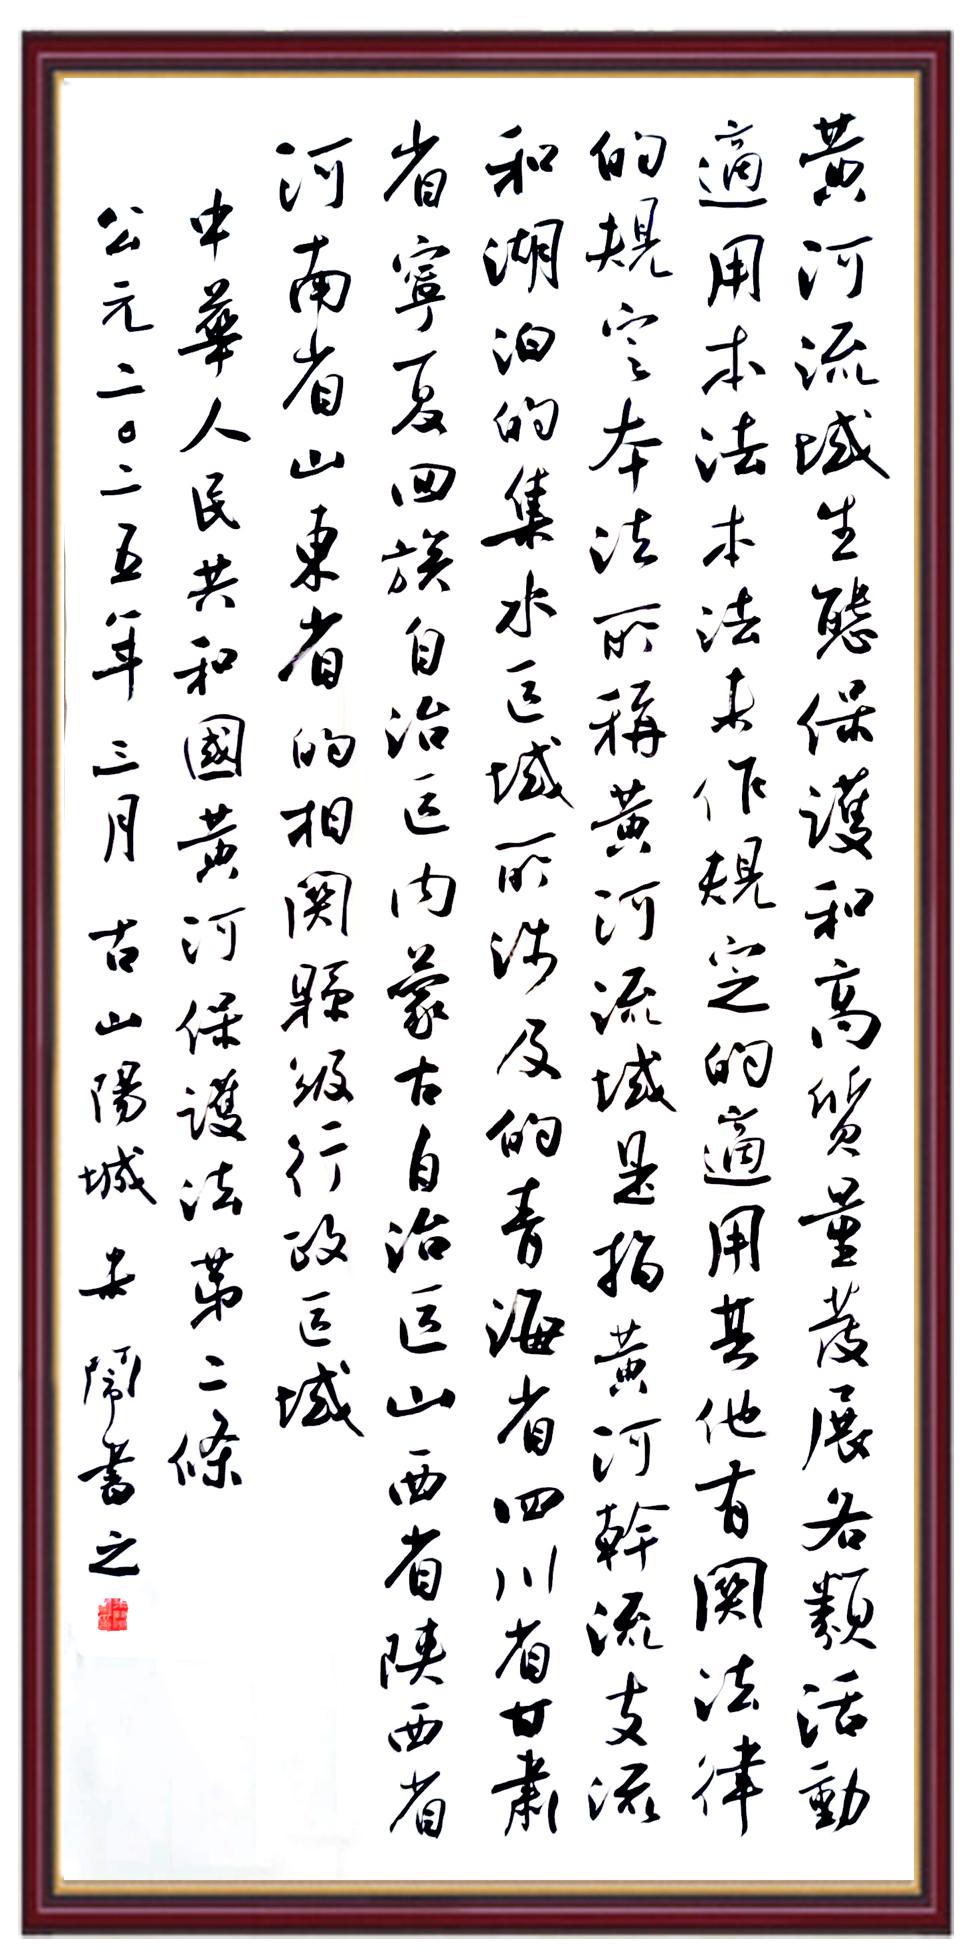 黃河流域生態保護和高質量發展各類活動
適用本法本法未作規定的適用其他有関法律
的規定本法所稱黃河流域是指黃河幹流支流
和湖泊的集水区域所涉及的青海省四川省甘肅
省寧夏回族自治区内蒙古自治区山西省陝西省
河南省山東省的相関縣級行政区域
中華人民共和國黃河保護法第二條
公元二〇二五年三月 古山陽城 閙書之